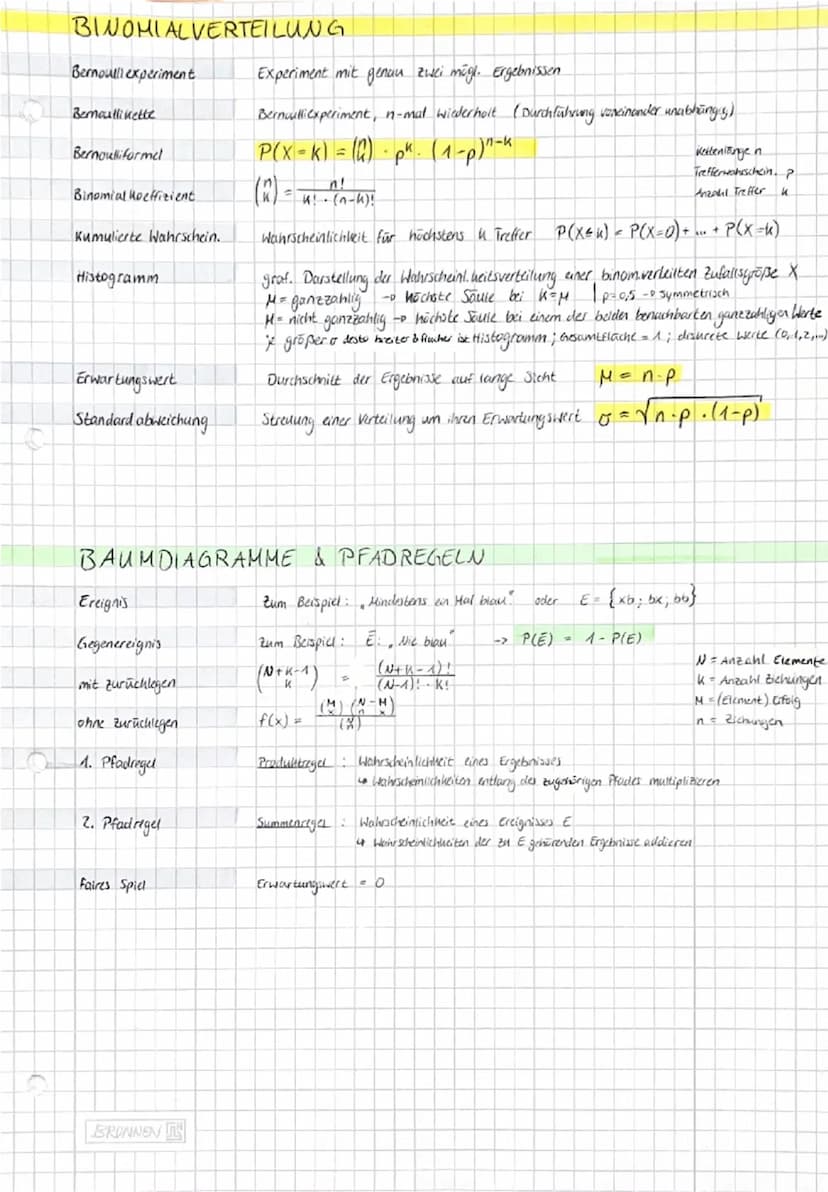 BINOMIALVERTEILUNG
Bernoulliexperiment Experiment mit genau zwei mögl. Ergebnissen
Bernoullikette Bernoulliexperiment, n-mal wiederholt (Durchführung voneinander unabhängig)
Bernoulliformel P(X=k) = (n k) · p^k · (1-p)^n-k
Kettenlänge n
Trefferwahrschein. p
Anzahl Treffer k
Binomialkoeffizient (n k) = n! / k! · (n-k)!
Kumulierte Wahrschein. Wahrscheinlichkeit für höchstens k Treffer P(X≤k) = P(X=0) + ... + P(X=k)
Histogramm graf. Darstellung der Wahrscheinl.keitsverteilung einer binom.verteilten Zufallsgröße X
μ = ganzzahlig → höchste Säule bei k=μ | p=0,5 → symmetrisch
μ = nicht ganzzahlig → höchste Säule bei einem der beiden benachbarten ganzzahligen Werte
je größer σ desto breiter & flacher ist Histogramm ; Gesamtfläche = 1 ; diskrete Werte (0,1,2,...)
Erwartungswert Durchschnitt der Ergebnisse auf lange Sicht μ = n·p
Standardabweichung Streuung einer Verteilung um ihren Erwartungswert σ = √n·p·(1-p)
BAUMDIAGRAMME & PFADREGELN
Ereignis Zum Beispiel: „Mindestens ein Mal blau" oder E = {xb; bx; bb}
Gegenereignis Zum Beispiel: Ē: „Nie blau" → P(Ē) = 1 - P(E)
mit zurücklegen (N+k-1 k) = (N+k-1)! / (N-1)! · k!
ohne zurücklegen f(x) = (M x) (N-M n-x) / (N n)
N = Anzahl Elemente
k = Anzahl Ziehungen
M = (Element) Erfolg
n = Ziehungen
1. Pfadregel Produktregel : Wahrscheinlichkeit eines Ergebnisses
↳ Wahrscheinlichkeiten entlang des zugehörigen Pfades multiplizieren
2. Pfadregel Summenregel : Wahrscheinlichkeit eines Ereignisses E
↳ Wahrscheinlichkeiten der zu E gehörenden Ergebnisse addieren
Faires Spiel Erwartungswert = 0
BRUNNEN